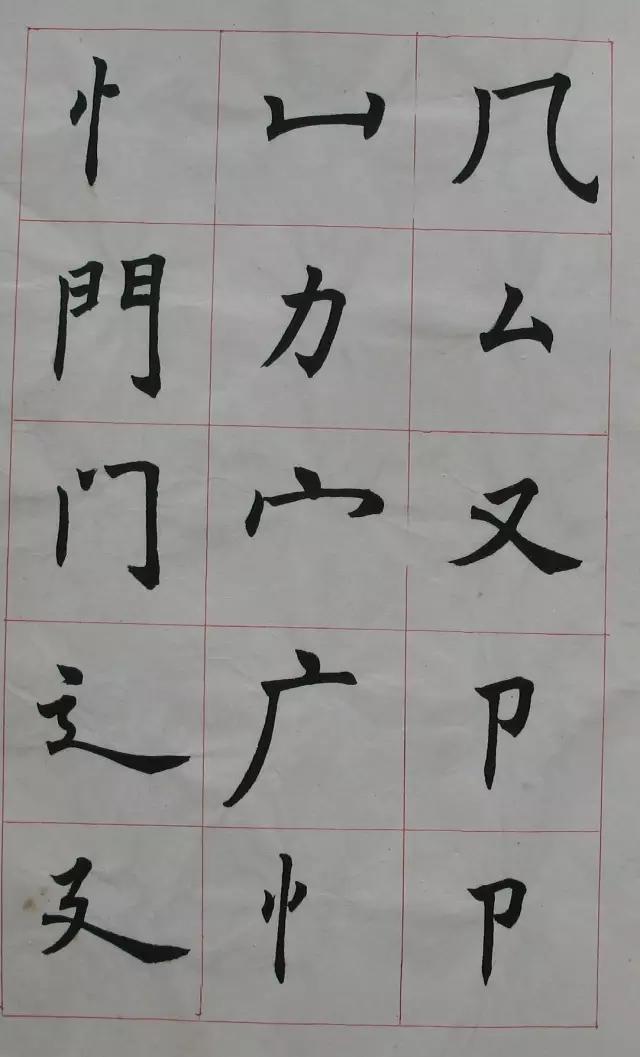 几厶又卩卩
凵力宀广忄
忄門门辶廴